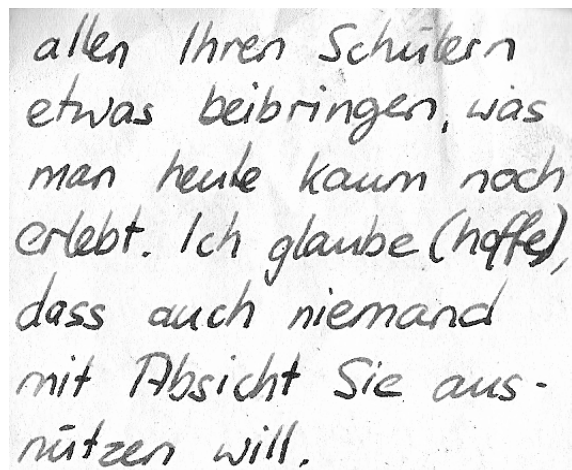 allen Ihren Schülern
etwas beibringen, was
man heute kaum noch
erlebt. Ich glaube (hoffe),
dass auch niemand
mit Absicht Sie aus-
nützen will.